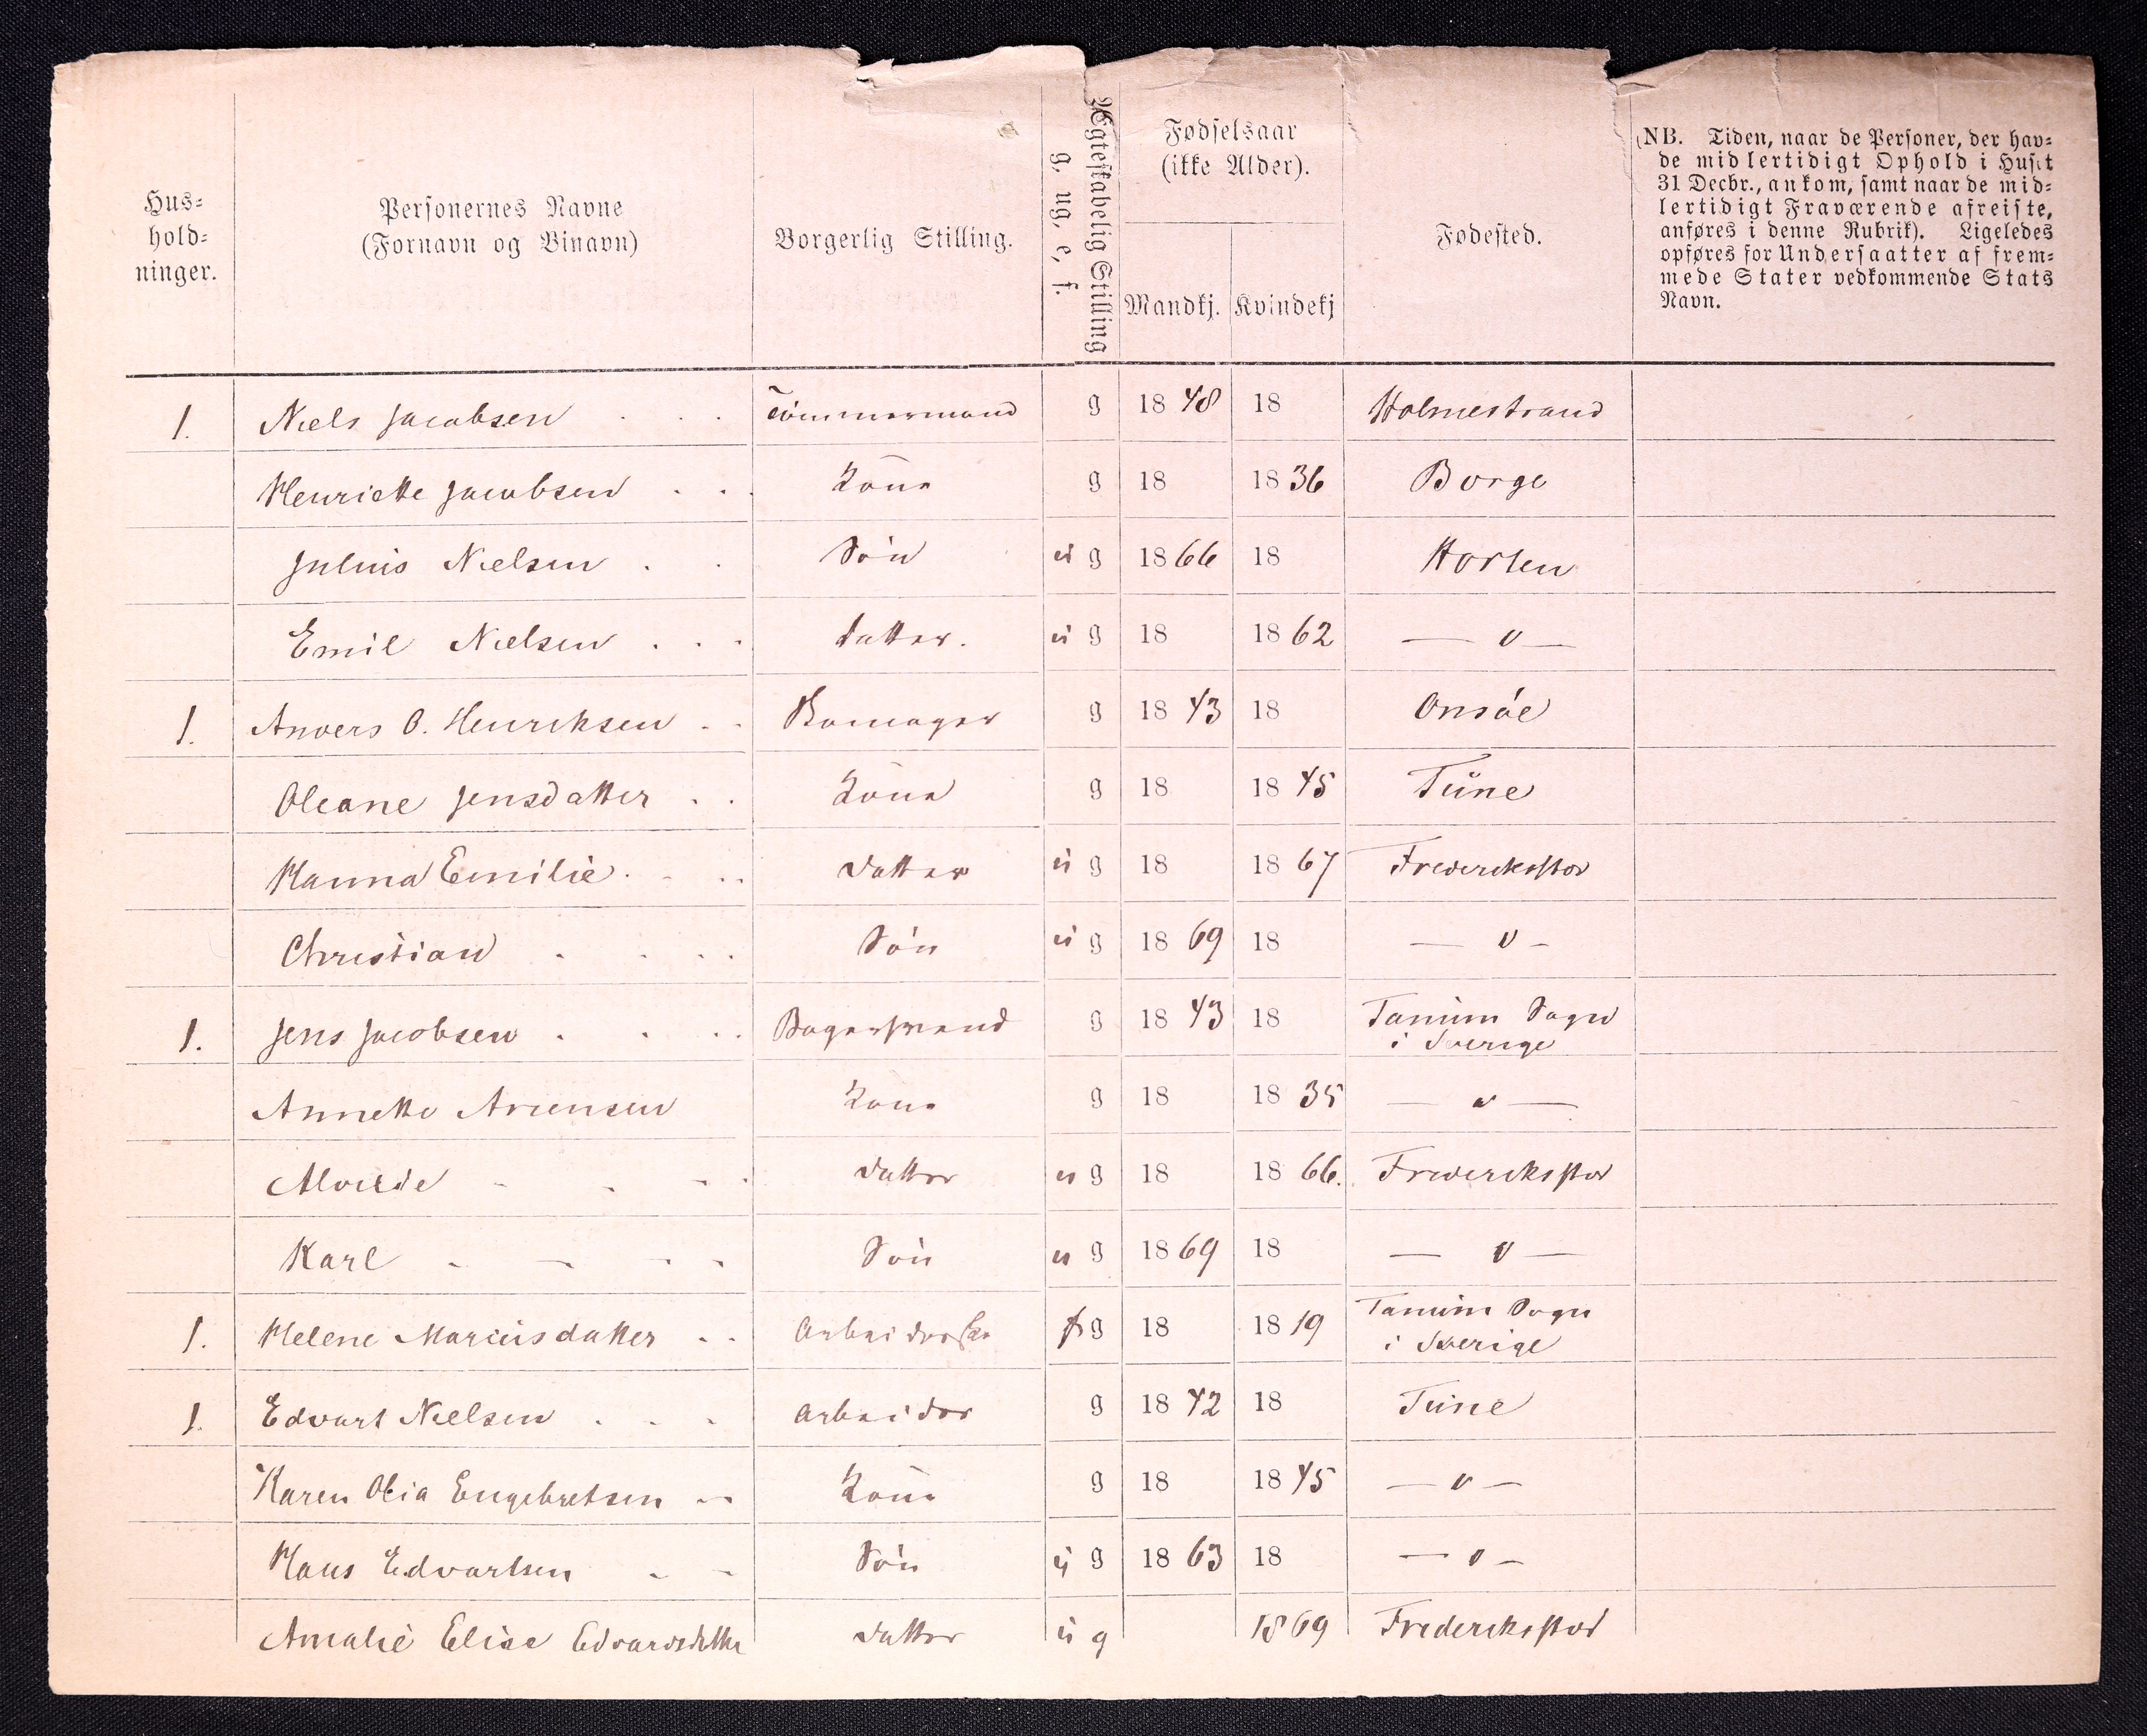 Hus-
hold-
ninger.
Personernes Navne
(Fornavn og Binavn)
Borgerlig Stilling.
Ægteskabelig Stilling
g, ug, e, f.
Fødselsaar
(ikke Alder).
Mandkj. Kvindekj
Fødested.
(NB. Tiden, naar de Personer, der hav-
de midlertidigt Ophold i Huset
31 Decbr., ankom, samt naar de mid-
lertidigt Fraværende afreiste,
anføres i denne Rubrik). Ligeledes
opføres for Undersaatter af frem-
mede Stater vedkommende Stats
Navn.
1. Niels Jacobsen . . . Tömmermand g 18 48 18 Holmestrand
Henriette Jacobsen . . . Kone g 18 18 36 Borge
Julius Nielsen . . Sön ug 18 66 18 Horten
Emil Nielsen . . . datter. ug 18 18 62 — " —
1. Anders O. Henriksen . . g 18 43 18 Onsöe
Oleane Jensdatter . . Kone g 18 18 45 Tune
Hanna Emilie . . . . datter ug 18 18 67 Frederiksstad
Christian . . . . Sön ug 18 69 18 — " —
1. Jens Jacobsen . . . . Bagersvend g 18 43 18 Tanum Sogn
i Sverige
Annette Arensen Kone g 18 18 35 — " —
datter ug 18 18 66. Frederiksstad
Karl - - - - Sön ug 18 69 18 — " —
1. Helene Mariusdatter . . Arbeiderske f g 18 18 19 Tanum Sogn
i Sverige
1. Edvart Nielsen . . . Arbeider g 18 42 18 Tune
Karen Olia Engebretsen - - Kone g 18 18 45 — " —
Hans Edvartsen - - Sön ug 18 63 18 — " —
Amalie Elise Edvardsdatter datter ug 1869 Frederiksstad